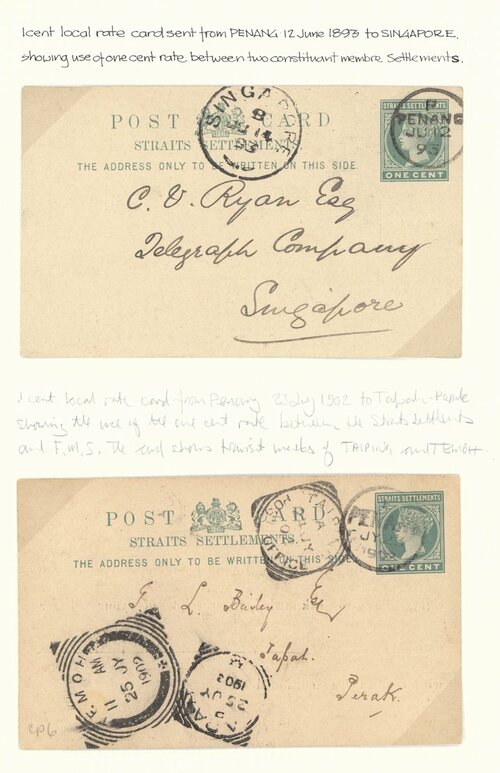 1cent local rate card sent from PENANG 12 June 1893 to SINGAPORE.
showing use of one cent rate between two constituant membre Settlements.
POST CARD
STRAITS SETTLEMENTS.
THE ADDRESS ONLY TO BE WRITTEN ON THIS SIDE.
SINGAPORE
B
JU 14
93
STRAITS SETTLEMENTS
D
PENANG
JU 12
93
ONE CENT
C. V. Ryan Esq
Telegraph Company
Singapore
1 cent local rate card from Penang 23 July 1902 to Tapah-Perak
showing the use of the one cent rate between the Straits Settlements
and F.M.S. The card shows transit marks of TAIPING and TEMOH
POST CARD
STRAITS SETTLEMENTS.
THE ADDRESS ONLY TO BE WRITTEN ON THIS SIDE.
POST OFFICE
JY
STRAITS SETTLEMENTS
PEN
JY
ONE CENT
L. Bailey Esq
Tapah.
Perak.
TEMOH
11 AM
25 JY
1902
25 JY
1902
CP6